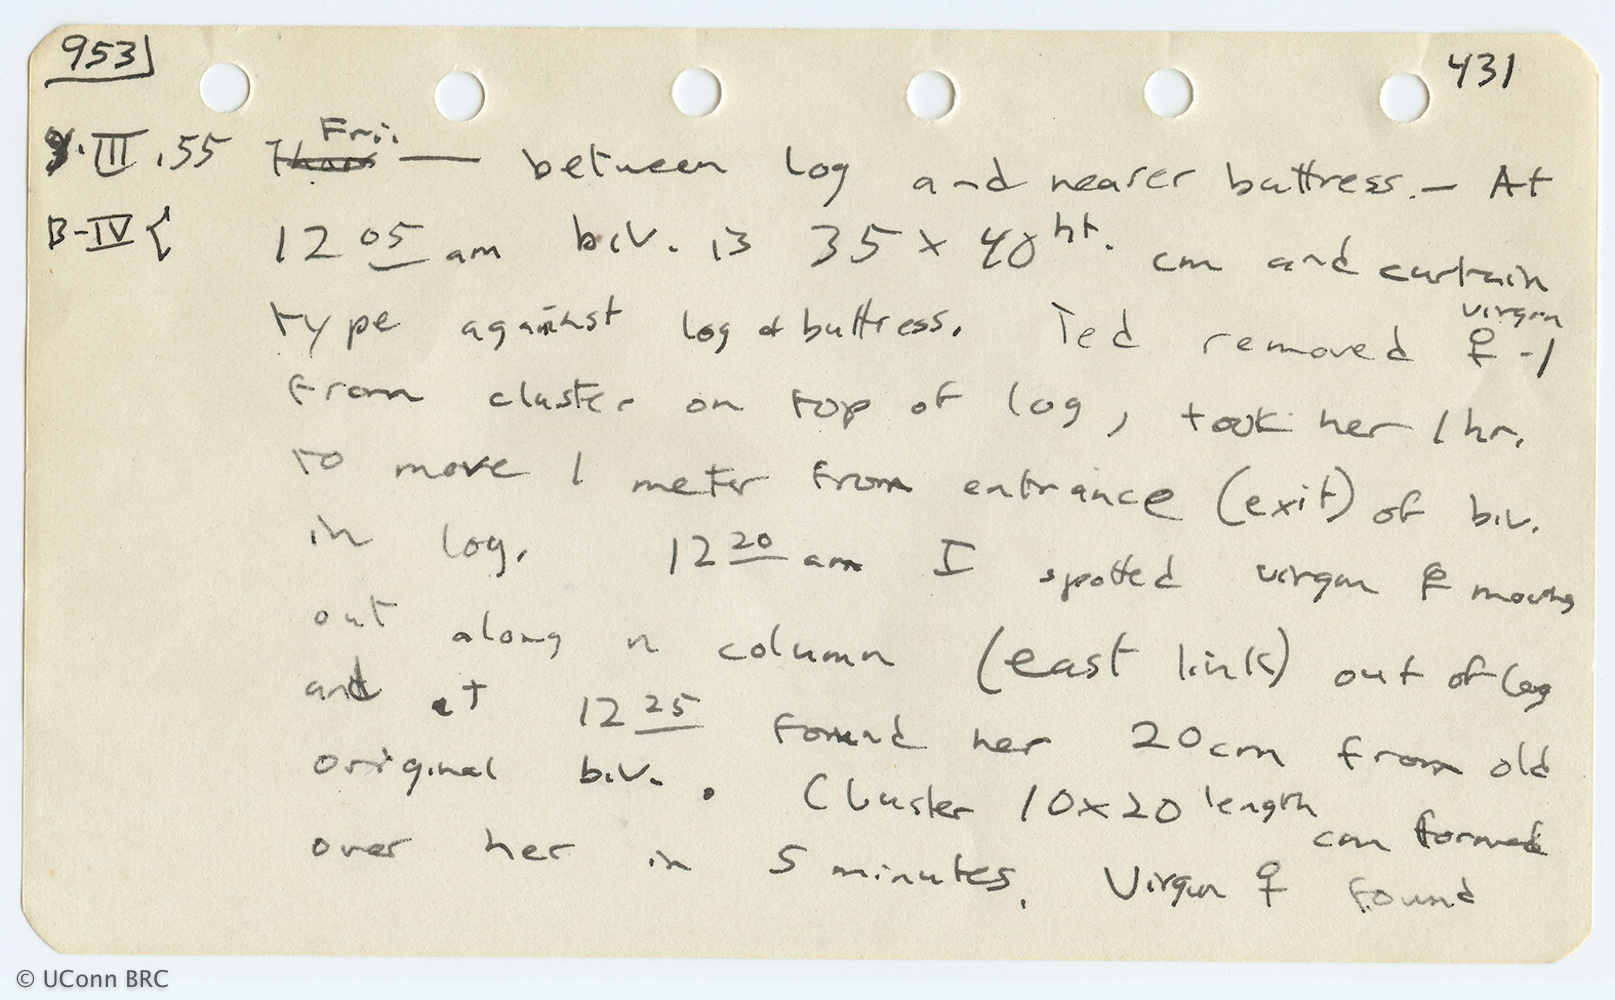 953 431
.III.55 Thurs Fri. — between log and nearer buttress. — At
B-IV { 12 05 am biv. is 35 x 40 ht. cm and curtain
type against log & buttress. Ted removed virgin ♀-1
from cluster on top of log, took her 1 hr.
to move 1 meter from entrance (exit) of biv.
in log. 12 20 am I spotted virgin ♀ moving
out along n column (east link) out of log
and at 12 25 found her 20 cm from old
original biv.. Cluster 10x20 length cm formed
over her in 5 minutes. Virgin ♀ found
© UConn BRC